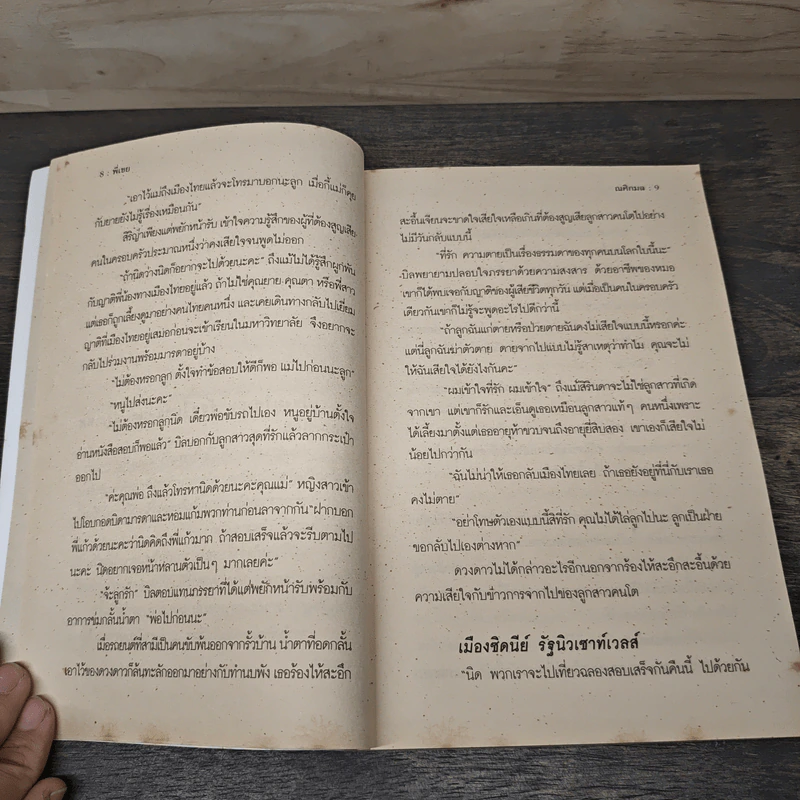 8 : พี่เขย
"เอาไว้แม่ถึงเมืองไทยแล้วจะโทรมาบอกนะลูก เมื่อกี้แม่ก็คุย
กับยายยังไม่รู้เรื่องเหมือนกัน"
สิริญาเพียงแต่พยักหน้ารับ เข้าใจความรู้สึกของผู้ที่ต้องสูญเสีย
คนในครอบครัวประมาณหนึ่งว่าคงเสียใจจนพูดไม่ออก
"ถ้านิดว่างนิดก็อยากจะไปด้วยนะคะ" ถึงแม้ไม่ได้รู้สึกผูกพัน
กับญาติพี่น้องทางเมืองไทยอยู่แล้ว ถ้าไม่ใช่คุณยาย คุณตา หรือพี่สาว
แต่เธอก็ถูกเลี้ยงดูมาอย่างคนไทยคนหนึ่ง และเคยเดินทางกลับไปเยี่ยม
ญาติที่เมืองไทยอยู่เสมอก่อนจะเข้าเรียนในมหาวิทยาลัย จึงอยากจะ
กลับไปร่วมงานพร้อมมารดาอยู่บ้าง
"ไม่ต้องหรอกลูก ตั้งใจทำข้อสอบให้ดีก็พอ แม่ไปก่อนนะลูก"
"หนูไปส่งนะคะ"
"ไม่ต้องหรอกลูกนิด เดี๋ยวพ่อขับรถไปเอง หนูอยู่บ้านตั้งใจ
อ่านหนังสือสอบก็พอแล้ว" บิลบอกกับลูกสาวสุดที่รักแล้วลากกระเป๋า
ออกไป
"ค่ะคุณพ่อ ถึงแล้วโทรหานิดด้วยนะคะคุณแม่" หญิงสาวเข้า
ไปโอบกอดบิดามารดาและหอมแก้มพวกท่านก่อนลาจากกัน "ฝากบอก
พี่แก้วด้วยนะคะว่านิดคิดถึงพี่แก้วมาก ถ้าสอบเสร็จแล้วจะรีบตามไป
นะคะ นิดอยากเจอหน้าหลานตัวเป็นๆ มากเลยค่ะ"
"จ้ะลูกรัก" บิลตอบแทนภรรยาที่ได้แต่พยักหน้ารับพร้อมกับ
อาการข่มกลั้นน้ำตา "พ่อไปก่อนนะ"
เมื่อรถยนต์ที่สามีเป็นคนขับพ้นออกจากรั้วบ้าน น้ำตาที่อดกลั้น
เอาไว้ของดวงดาวก็ล้นทะลักออกมาอย่างกับทำนบพัง เธอร้องไห้สะอึก
ณศิกมล : 9
สะอื้นเจียนจะขาดใจเสียใจเหลือเกินที่ต้องสูญเสียลูกสาวคนโตไปอย่าง
ไม่มีวันกลับแบบนี้
"ที่รัก ความตายเป็นเรื่องธรรมดาของทุกคนบนโลกใบนี้นะ"
บิลพยายามปลอบใจภรรยาด้วยความสงสาร ด้วยอาชีพของหมอ
เขาก็ได้พบเจอกับญาติของผู้เสียชีวิตทุกวัน แต่เมื่อเป็นคนในครอบครัว
เดียวกันเขาก็ไม่รู้จะพูดอะไรไปดีกว่านี้
"ถ้าลูกฉันแก่ตายหรือป่วยตายฉันคงไม่เสียใจแบบนี้หรอกค่ะ
แต่นี่ลูกฉันฆ่าตัวตาย ตายจากไปแบบไม่รู้สาเหตุว่าทำไม คุณจะไม่
ให้ฉันเสียใจได้ยังไงกันคะ"
"ผมเข้าใจที่รัก ผมเข้าใจ" ถึงแม้สิรินดาจะไม่ใช่ลูกสาวที่เกิด
จากเขา แต่เขาก็รักและเอ็นดูเธอเหมือนลูกสาวแท้ๆ คนหนึ่งเพราะ
ได้เลี้ยงมาตั้งแต่เธออายุห้าขวบจนถึงอายุยี่สิบสอง เขาเองก็เสียใจไม่
น้อยไปกว่ากัน
"ฉันไม่น่าให้เธอกลับเมืองไทยเลย ถ้าเธอยังอยู่ที่นี่กับเราเธอ
คงไม่ตาย"
"อย่าโทษตัวเองแบบนี้สิที่รัก คุณไม่ได้ไล่ลูกไปนะ ลูกเป็นฝ่าย
ขอกลับไปเองต่างหาก"
ดวงดาวไม่ได้กล่าวอะไรอีกนอกจากร้องไห้สะอึกสะอื้นด้วย
ความเสียใจกับข่าวการจากไปของลูกสาวคนโต
เมืองซิดนีย์ รัฐนิวเซาท์เวลส์
"นิด พวกเราจะไปเที่ยวฉลองสอบเสร็จกันคืนนี้ ไปด้วยกัน